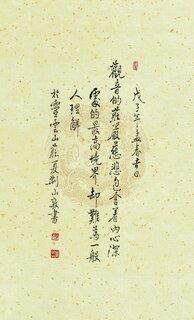 戊子年孟春吉日
觀音的莊嚴慈悲包含著内心深
處的最高境界却難為一般
人理解
於靈雲山莊夏荆山敬書